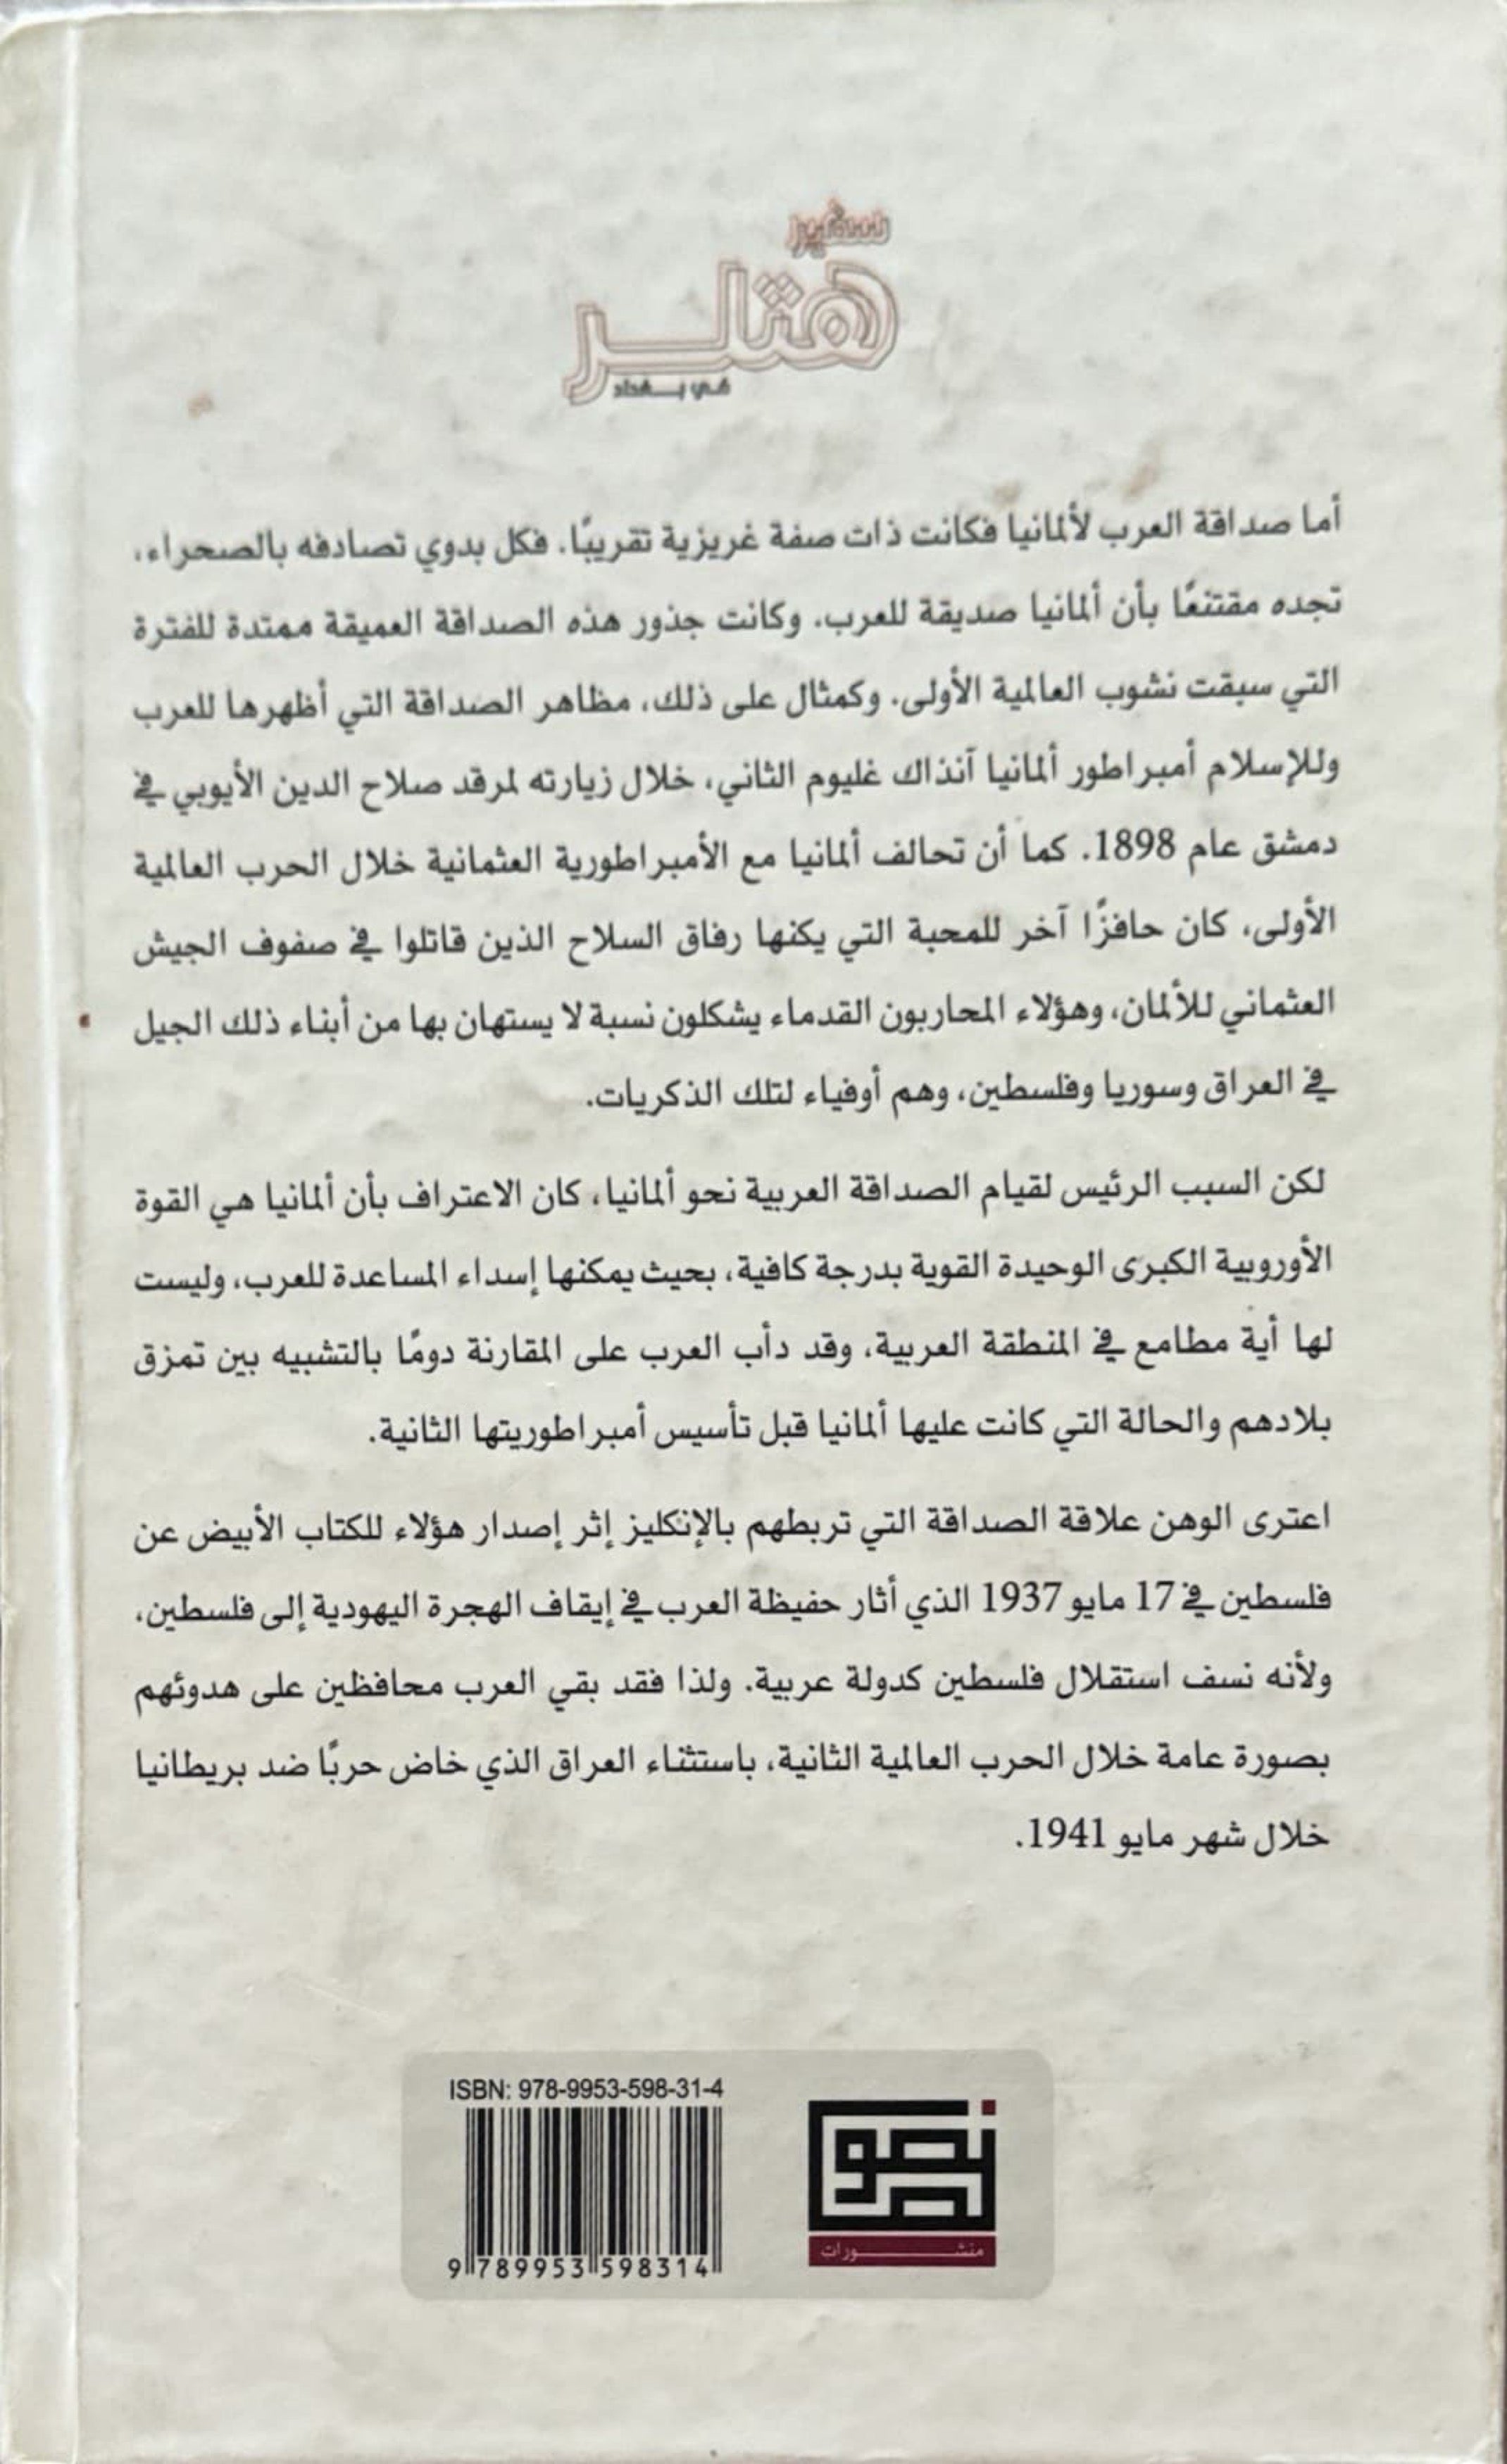 سفير
هتلر
في بغداد
أما صداقة العرب لألمانيا فكانت ذات صفة غريزية تقريبًا. فكل بدوي تصادفه بالصحراء،
تجده مقتنعًا بأن ألمانيا صديقة للعرب. وكانت جذور هذه الصداقة العميقة ممتدة للفترة
التي سبقت نشوب العالمية الأولى. وكمثال على ذلك، مظاهر الصداقة التي أظهرها للعرب
وللإسلام أمبراطور ألمانيا آنذاك غليوم الثاني، خلال زيارته لمرقد صلاح الدين الأيوبي في
دمشق عام 1898. كما أن تحالف ألمانيا مع الأمبراطورية العثمانية خلال الحرب العالمية
الأولى، كان حافزًا آخر للمحبة التي يكنها رفاق السلاح الذين قاتلوا في صفوف الجيش
العثماني للألمان، وهؤلاء المحاربون القدماء يشكلون نسبة لا يستهان بها من أبناء ذلك الجيل
في العراق وسوريا وفلسطين، وهم أوفياء لتلك الذكريات.
لكن السبب الرئيس لقيام الصداقة العربية نحو ألمانيا، كان الاعتراف بأن ألمانيا هي القوة
الأوروبية الكبرى الوحيدة القوية بدرجة كافية، بحيث يمكنها إسداء المساعدة للعرب، وليست
لها أية مطامع في المنطقة العربية، وقد دأب العرب على المقارنة دومًا بالتشبيه بين تمزق
بلادهم والحالة التي كانت عليها ألمانيا قبل تأسيس أمبراطوريتها الثانية.
اعترى الوهن علاقة الصداقة التي تربطهم بالإنكليز إثر إصدار هؤلاء للكتاب الأبيض عن
فلسطين في 17 مايو 1937 الذي أثار حفيظة العرب في إيقاف الهجرة اليهودية إلى فلسطين،
ولأنه نسف استقلال فلسطين كدولة عربية. ولذا فقد بقي العرب محافظين على هدوئهم
بصورة عامة خلال الحرب العالمية الثانية، باستثناء العراق الذي خاض حربًا ضد بريطانيا
خلال شهر مايو 1941.
ISBN: 978-9953-598-31-4
9 789953 598314
نصوص
منشورات